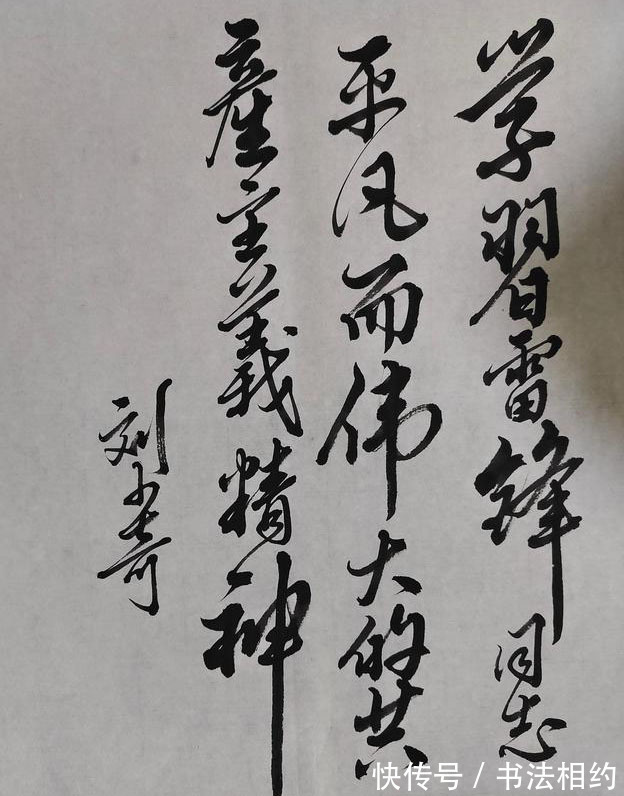 学習雷锋同志
平凡而伟大的共
產主義精神
刘少奇
快传号 / 书法相约